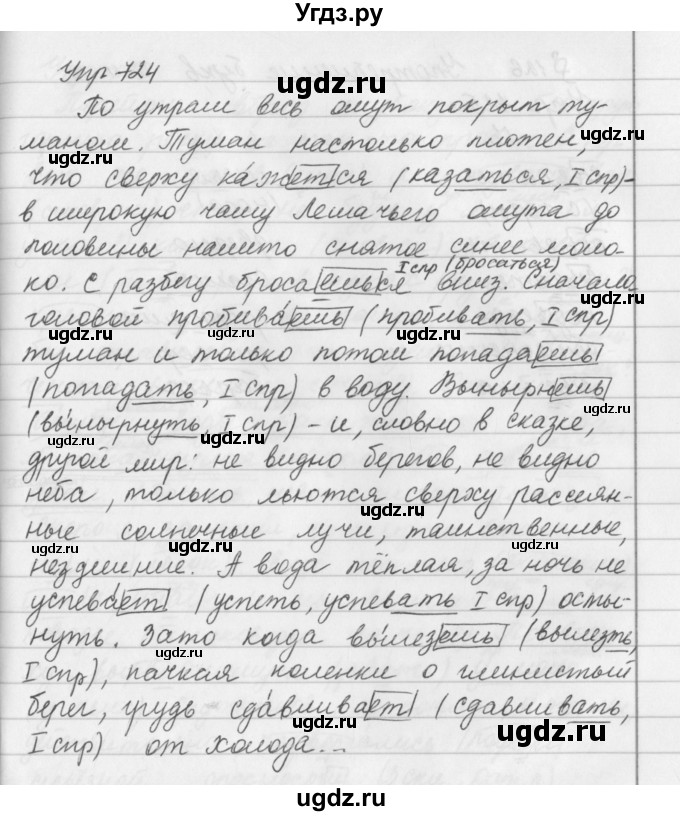 Угдз.ру
Упр 724
По утрам весь омут покрыт ту-
маном. Туман настолько плотен,
что сверху кажется (казаться, I спр)-
в широкую чашу Лешачьего омута до
половины налито снятое синее моло-
ко. С разбегу бросаешься I спр (бросаться) вниз. Сначала
головой пробиваешь (пробивать, I спр)
туман и только потом попадаешь
(попадать, I спр) в воду. Вынырнешь
(вынырнуть, I спр) - и, словно в сказке,
другой мир: не видно берегов, не видно
неба, только льются сверху рассеян-
ные солнечные лучи, таинственные,
нездешние. А вода тёплая, за ночь не
успевает (успеть, успевать I спр) осты-
нуть. Зато когда вылезешь (вылезть,
I спр), пачкая коленки о глинистый
берег, грудь сдавливает (сдавливать,
I спр) от холода...
ugdz.ru